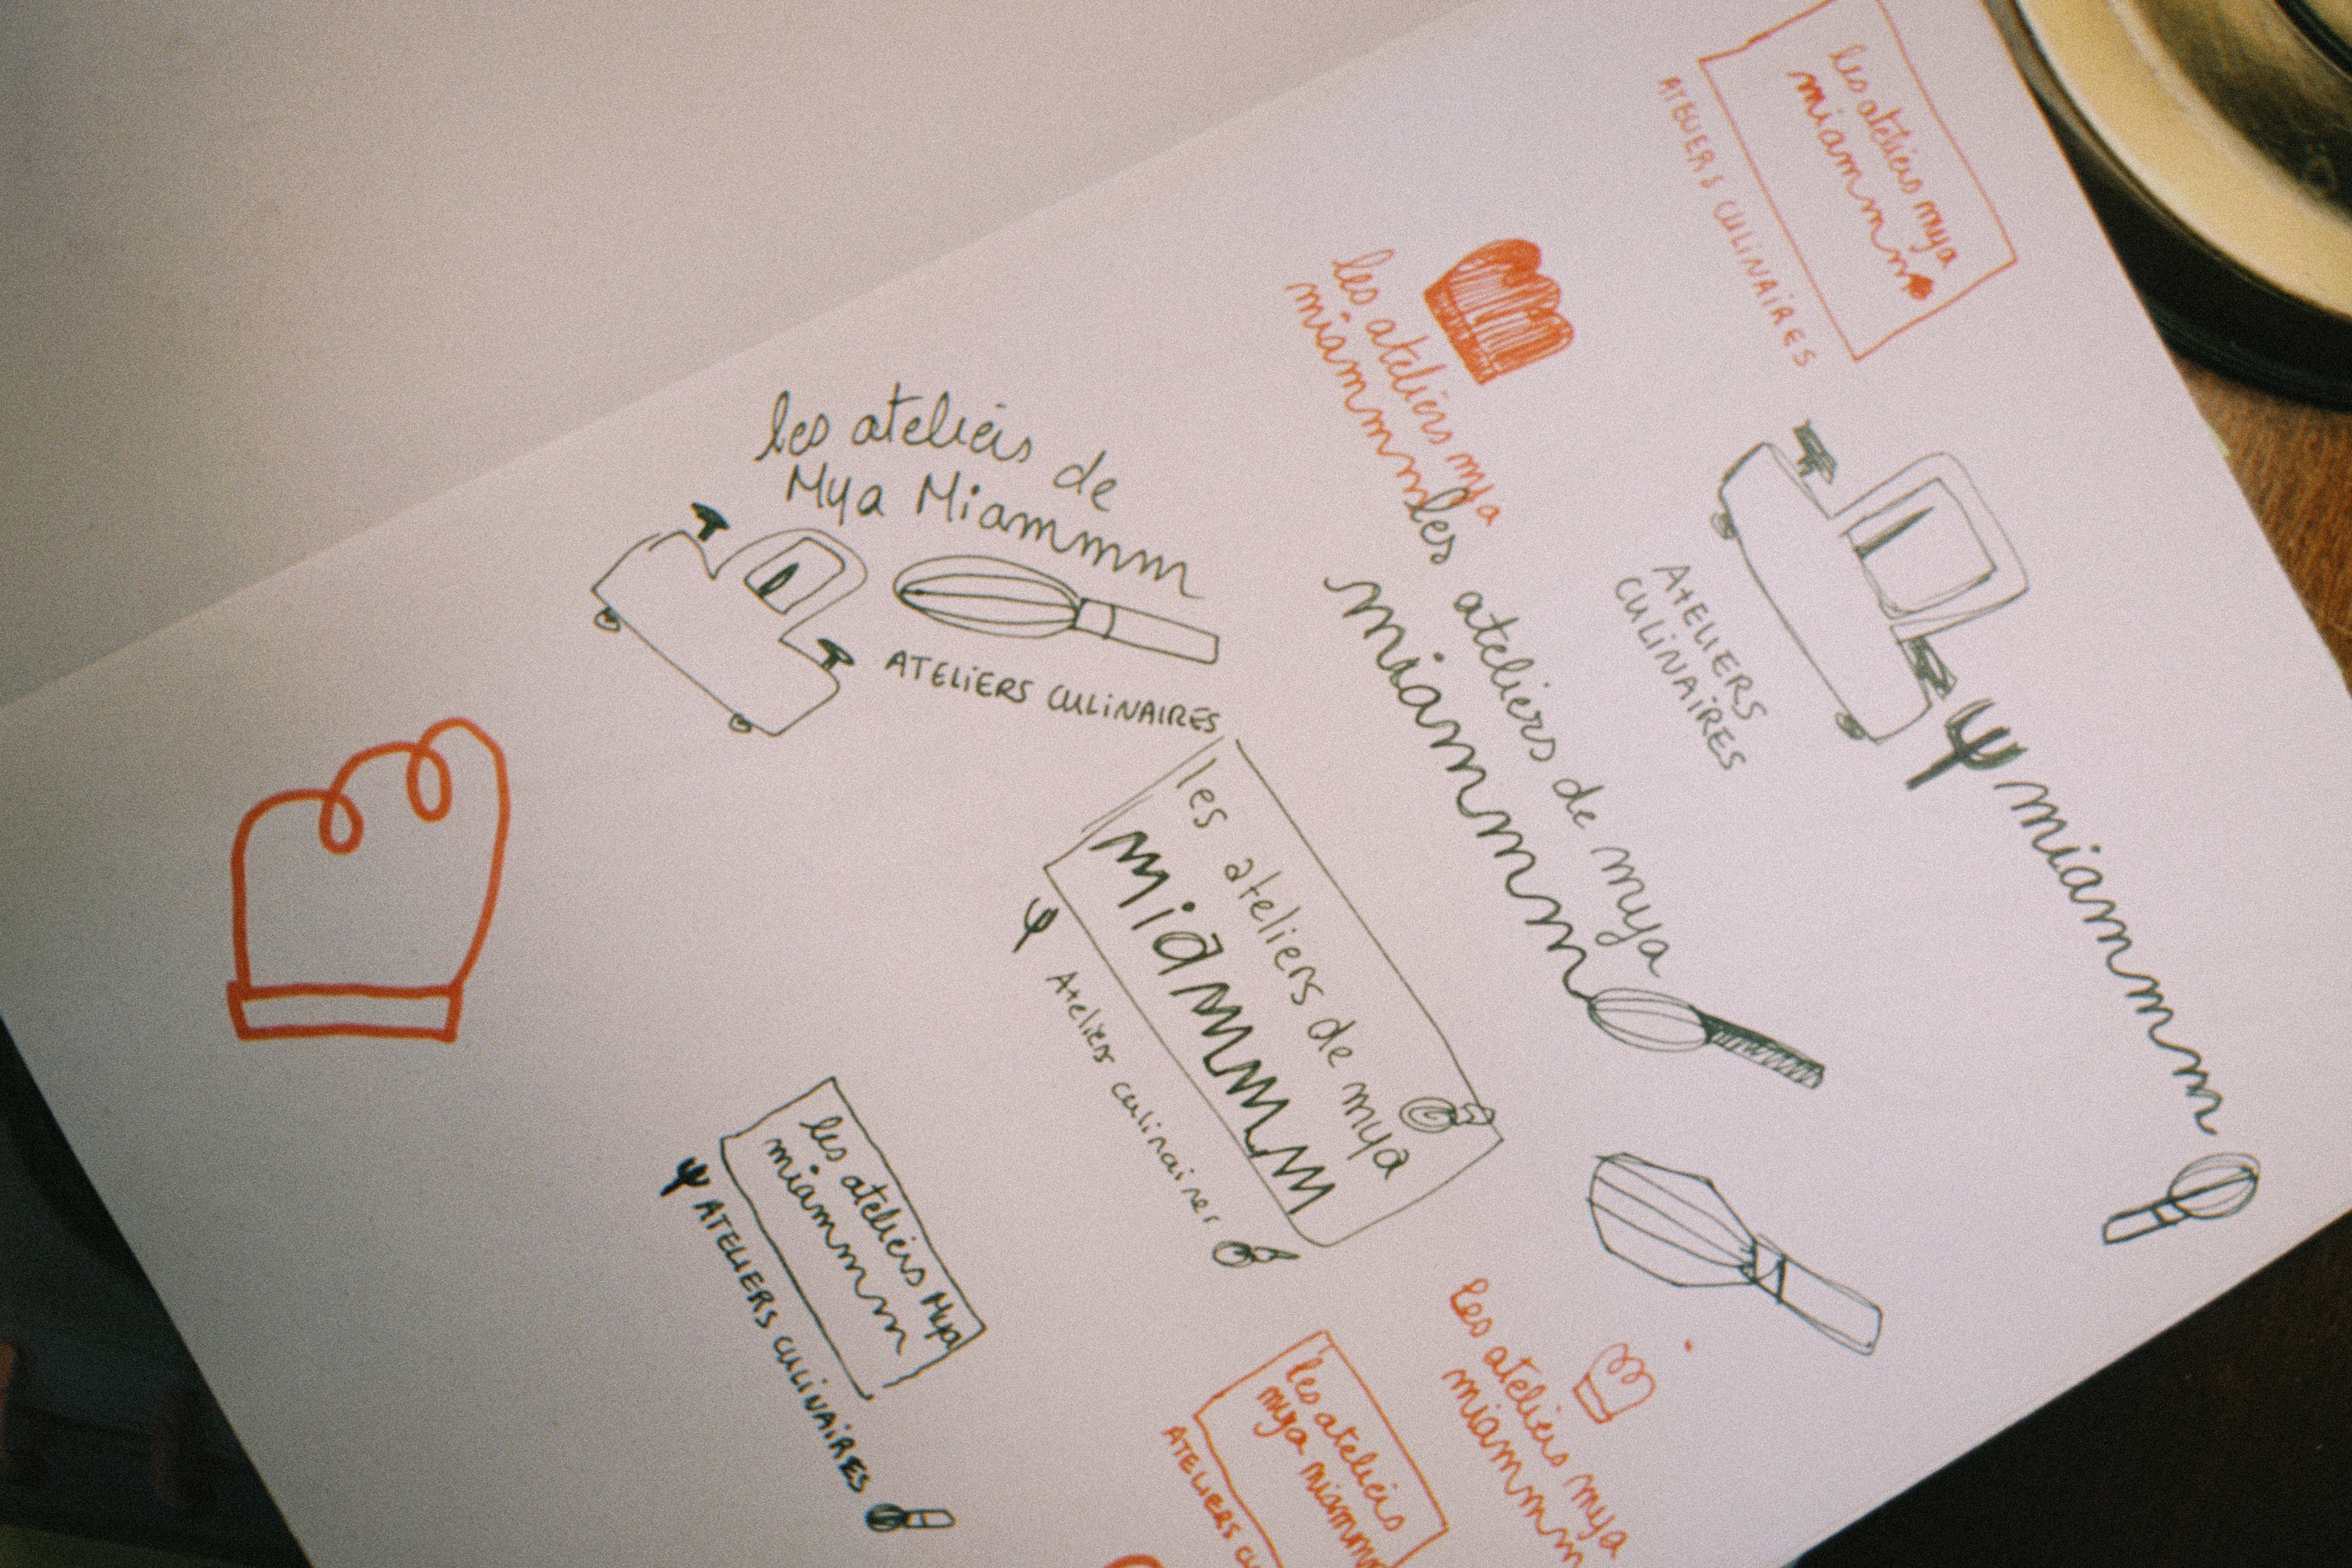 les ateliers mya
miammm
ATELIERS CULINAIRES
les ateliers mya
miammm
les ateliers de
Mya Miammm
ATELIERS CULINAIRES
les ateliers de mya
miammmm
ATELIERS
CULINAIRES
miammmm
les ateliers de mya
miammmm
Ateliers culinaires
les ateliers Mya
miammm
ATELIERS CULINAIRES
les ateliers
mya miammm
ATELIERS
les ateliers mya
miammm